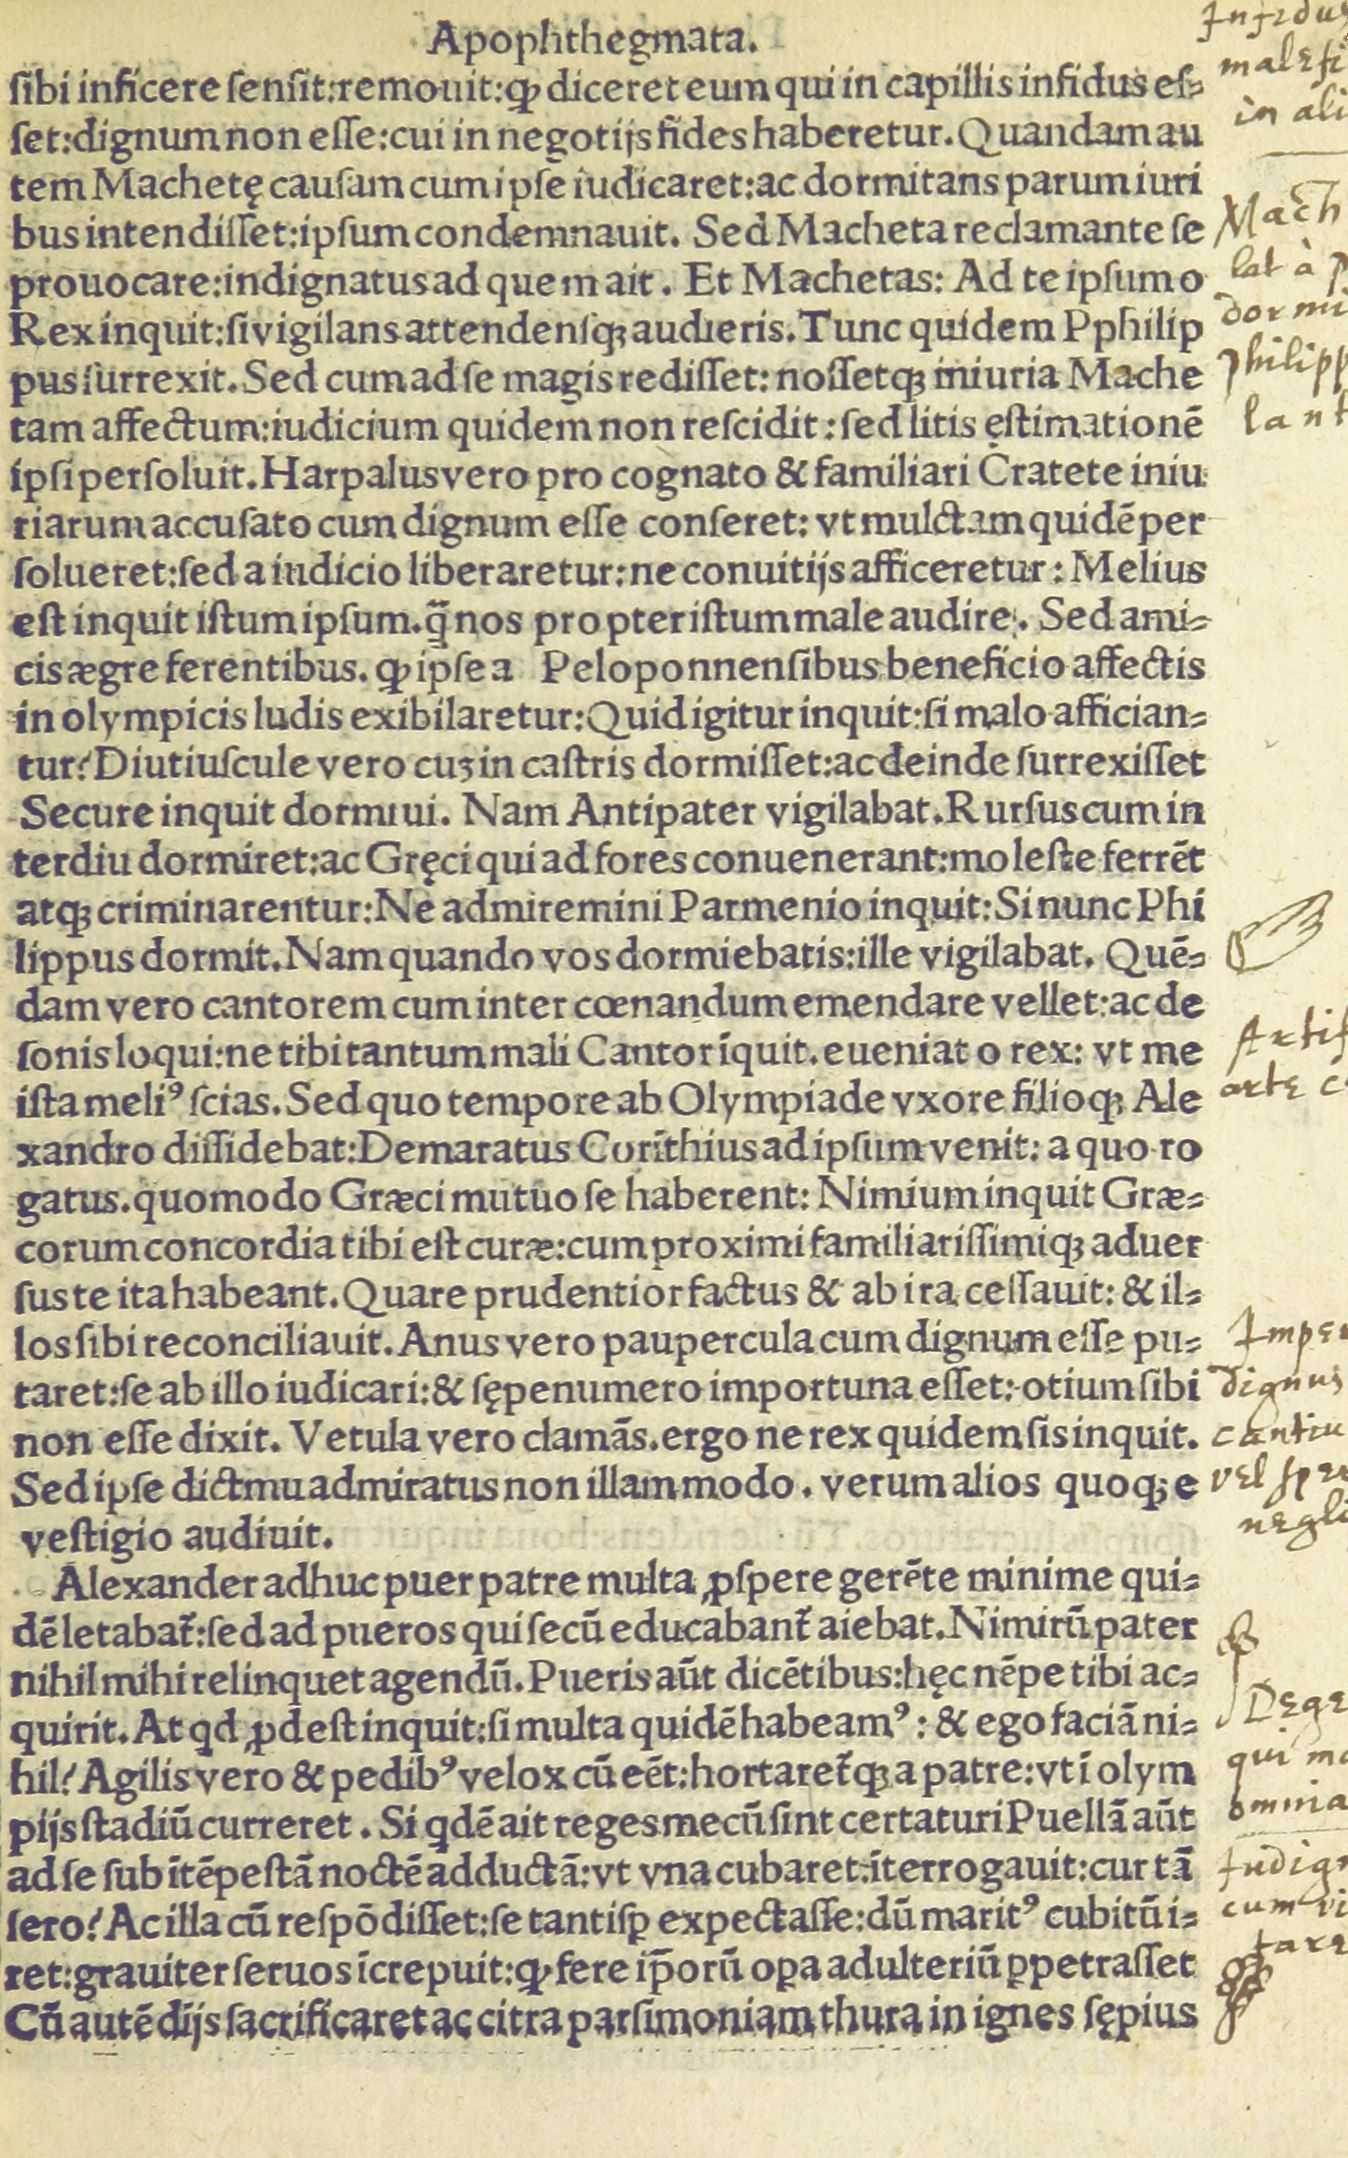 Apophthegmata.
ſibi inficere ſenſit:remouit:ꝙ diceret eum qui in capillis infidus eſ-
ſet:dignum non eſſe:cui in negotijs fides haberetur. Quandam au
tem Machetę cauſam cum ipſe iudicaret:ac dormitans parum iuri
bus intendiſſet:ipſum condemnauit. Sed Macheta reclamante ſe
prouocare:indignatus ad quem ait. Et Machetas: Ad te ipſum o
Rex inquit:ſi vigilans attendenſqꝫ audieris. Tunc quidem Pphilip
pus ſurrexit. Sed cum ad ſe magis rediſſet: noſſetqꝫ iniuria Mache
tam affectum:iudicium quidem non reſcidit: ſed litis ęſtimationē
ipſi perſoluit. Harpalus vero pro cognato & familiari Cratete iniu
riarum accuſato cum dignum eſſe conſeret: vt mulctam quidē per
ſolueret:ſed a iudicio liberaretur: ne conuitijs afficeretur: Melius
eſt inquit iſtum ipſum.q̄ nos propter iſtum male audire. Sed ami-
cis ægre ferentibus. ꝙ ipſe a Peloponnenſibus beneficio affectis
in olympicis ludis exibilaretur: Quid igitur inquit:ſi malo affician-
tur? Diutiuſcule vero cuꝫ in caſtris dormiſſet:ac deinde ſurrexiſſet
Secure inquit dormiui. Nam Antipater vigilabat. Rurſus cum in
terdiu dormiret:ac Gręci qui ad fores conuenerant:moleſte ferrēt
atqꝫ criminarentur: Ne admiremini Parmenio inquit: Si nunc Phi
lippus dormit. Nam quando vos dormiebatis:ille vigilabat. Quē-
dam vero cantorem cum inter cœnandum emendare vellet:ac de
ſonis loqui:ne tibi tantum mali Cantor īquit. eueniat o rex: vt me
iſta meliꝰ ſcias. Sed quo tempore ab Olympiade vxore filioqꝫ Ale
xandro diſſidebat: Demaratus Corīthius ad ipſum venit: a quo ro
gatus. quomodo Græci mutuo ſe haberent: Nimium inquit Græ-
corum concordia tibi eſt curæ:cum proximi familiariſſimiqꝫ aduer
ſus te ita habeant. Quare prudentior factus & ab ira ceſſauit: & il-
los ſibi reconciliauit. Anus vero paupercula cum dignum eſſe pu-
taret:ſe ab illo iudicari:& ſępenumero importuna eſſet: otium ſibi
non eſſe dixit. Vetula vero clamās. ergo ne rex quidem ſis inquit.
Sed ipſe dictmu admiratus non illam modo. verum alios quoqꝫ e
veſtigio audiuit.
Alexander adhuc puer patre multa ꝓſpere gerēte minime qui-
dē letabat̄:ſed ad pueros qui ſecū educabant̄ aiebat. Nimirū pater
nihil mihi relinquet agendū. Pueris aūt dicētibus:hęc nēpe tibi ac-
quirit. At qd ꝓdeſt inquit:ſi multa quidē habeamꝰ: & ego faciā ni-
hil? Agilis vero & pedibꝰ velox cū eēt:hortaret̄qꝫ a patre:vt ī olym
pijs ſtadiū curreret. Si qdē ait reges mecū ſint certaturi Puellā aūt
ad ſe ſub ītēpeſtā noctē adductā:vt vna cubaret:īterrogauit:cur tā
ſero? Ac illa cū reſpōdiſſet:ſe tantiſꝑ expectaſſe:dū maritꝰ cubitū i-
ret:grauiter ſeruos īcrepuit:ꝙ fere ip̄orū oꝑa adulteriū ꝑpetraſſet
Cū autē dijs ſacrificaret ac citra parſimoniam thura in ignes ſępius
Infidus
malefi
in ali
Mach
lat à p
dormi
Philipp
lant
Artif
arte c
Imper
dignus
cantiu
vel sper
negli
Dege
qui mo
omnia
Indign
cum vi
tare